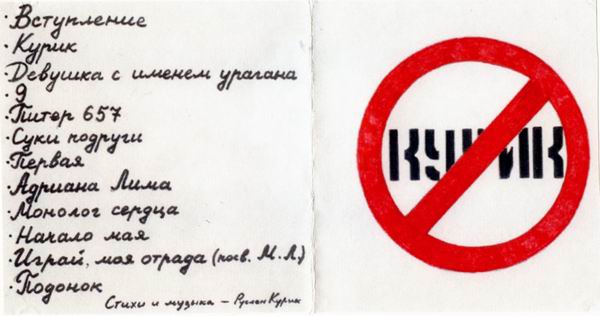 ·Вступление
·Курик
·Девушка с именем урагана
·9
·Питер 657
·Суки подруги
·Первая
·Адриана Лима
·Монолог сердца
·Начало мая
·Играй, моя отрада (посв. М. Л.)
·Подонок
Стихи и музыка – Руслан Курик
КУРИК